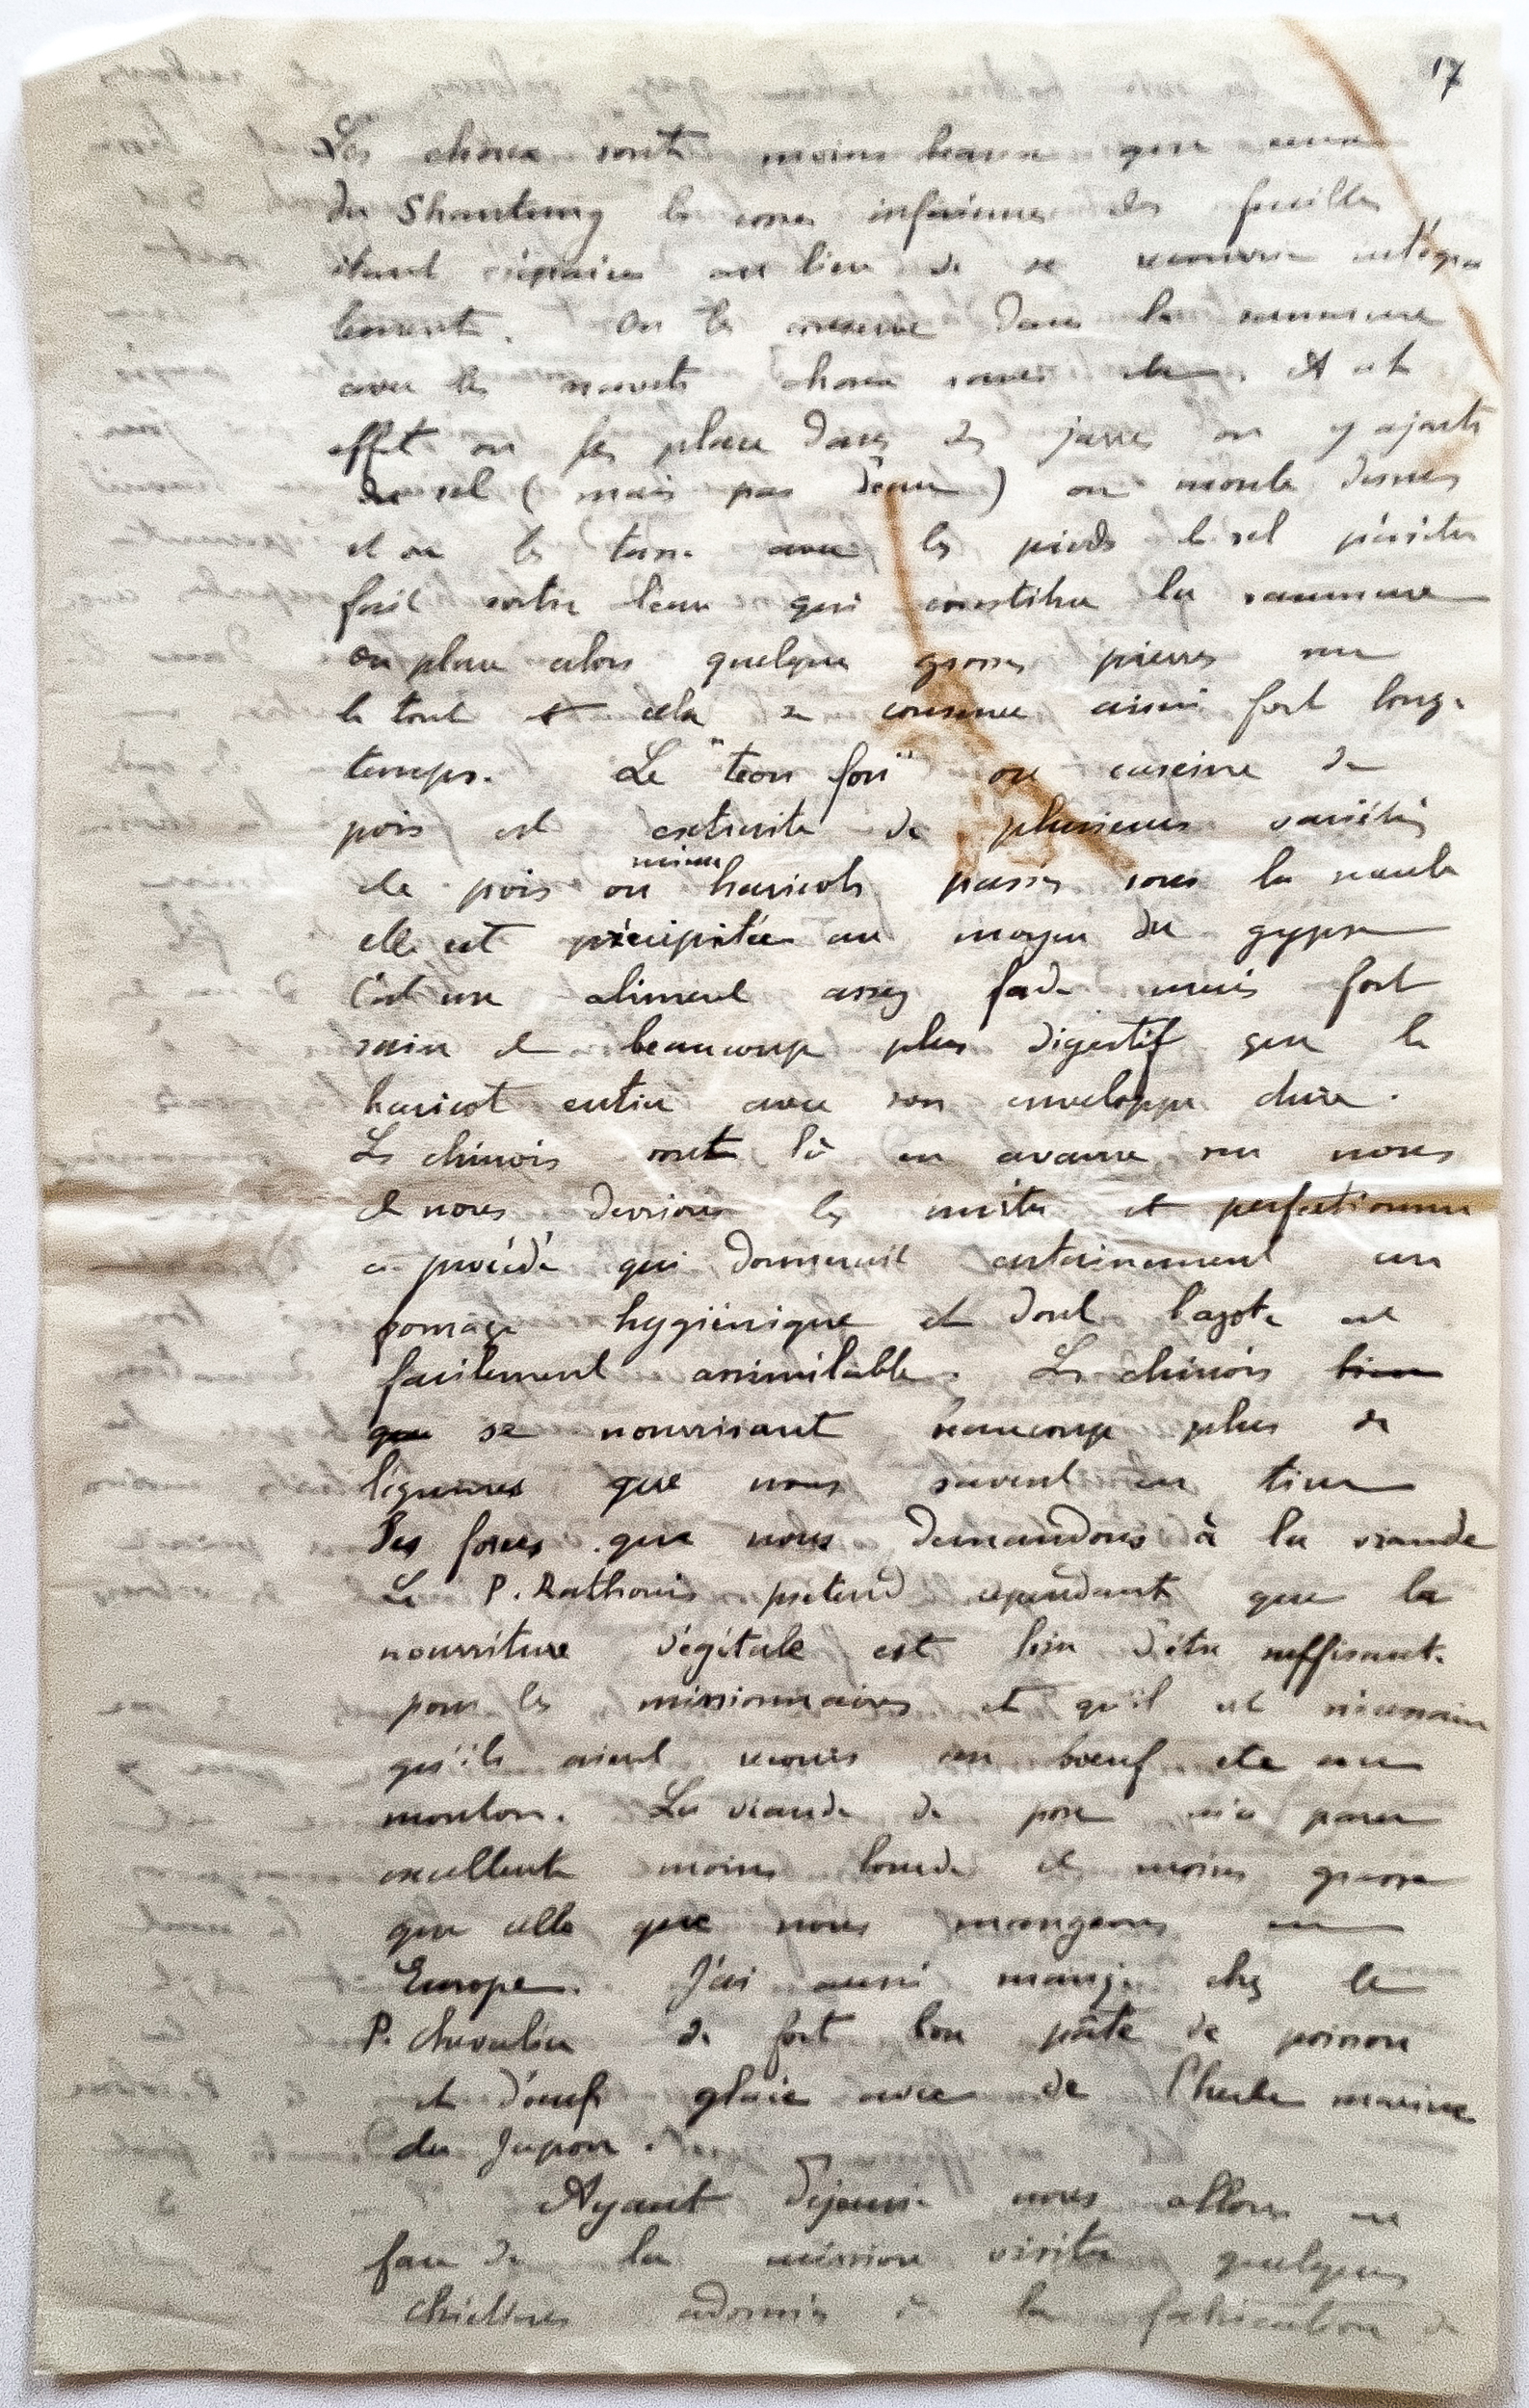 17
Ces choux sont moins beaux que ceux
du Shantung les côtes inférieures des feuilles
étant épaisses au lieu de se recouvrir intégra
lement. On les conserve dans la saumure
avec les navets choux raves etc. A cet
effet on les place dans des jarres on y ajoute
du sel (mais pas d'eau) on monte dessus
et on les tasse avec les pieds le sel pénètre
fait sortir l'eau qui constitue la saumure
on place alors quelques grosses pierres sur
le tout et cela se conserve ainsi fort long-
temps. Le "teou fou" ou caséine de
pois est extraite de plusieurs variétés
de pois ou mieux haricots passés sous la meule
elle est précipitée au moyen du gypse
C'est un aliment assez fade mais fort
sain et beaucoup plus digestif que le
haricot entier avec son enveloppe dure.
Les chinois sont là en avance sur nous
et nous devrions les imiter et perfectionner
ce procédé qui donnerait certainement un
fromage hygiénique et dont l'azote est
facilement assimilable. Les chinois bien
que se nourrissant beaucoup plus de
légumes que nous savent en tirer
les forces que nous demandons à la viande
Le P. Rathouis prétend cependant que la
nourriture végétale est loin d'être suffisante
pour les missionnaires et qu'il est nécessaire
qu'ils aient recours au bœuf et au
mouton. La viande de porc m'a paru
excellente moins lourde et moins grasse
que celle que nous mangeons en
Europe. J'ai aussi mangé chez le
P. Chevalier de fort bon pâté de poisson
et d'œufs glacé avec de l'herbe marine
du Japon.
Ayant déjeuné nous allons en
face de la mission visiter quelques
chrétiens adonnés à la fabrication de